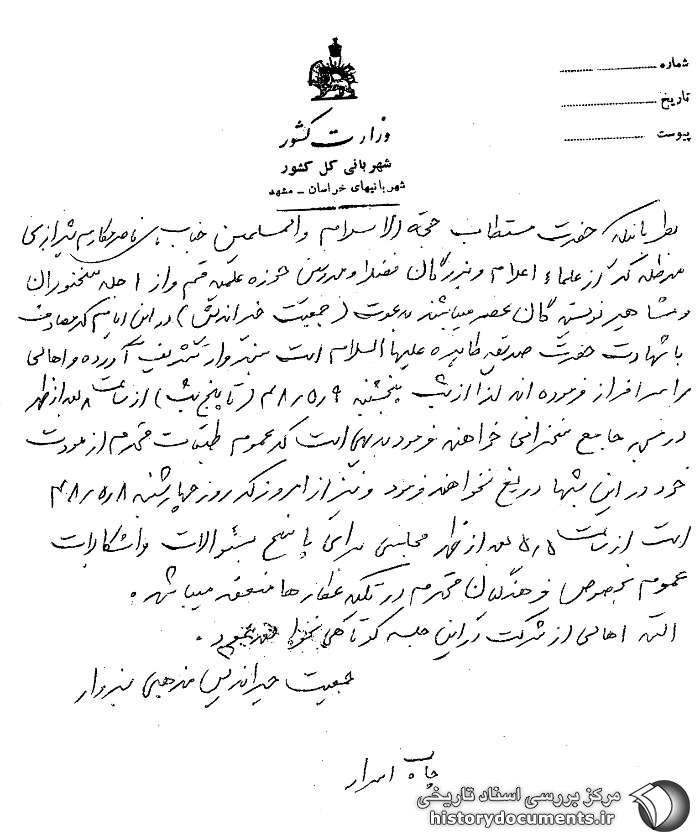 شماره
تاریخ
پیوست
وزارت کشور
شهربانی کل کشور
شهربانیهای خراسان - مشهد
نظر باینکه حضرت مستطاب حجة الاسلام والمسلمین جناب آقای ناصر مکارم شیرازی
مدظله که از علماء اعلام و بزرگان فضلا و مدرسین حوزه علمیه قم و از اجله سخنوران
و مشاهیر نویسندگان عصر میباشند بدعوت (جمعیت خیراندیش) در این ایام که مصادف
با شهادت حضرت صدیقه طاهره علیها السلام است بسبزوار تشریف آورده و اهالی
را سرافراز فرموده اند لذا از شب پنجشنبه ۴۸٫۵٫۹ (تا پنج شب) از ساعت ۸ بعد از ظهر
در مسجد جامع سخنرانی خواهند فرمود بدیهی است که عموم طبقات محترم از مودت
خود در این شبها دریغ نخواهند فرمود و نیز از امروز که روز چهارشنبه ۴۸٫۵٫۸
است از ساعت ۵٫۵ بعد از ظهر مجلسی برای پاسخ بسئوالات و اشکالات
عموم بخصوص فرهنگیان محترم در تکیه عطارها منعقد میباشد .
البته اهالی از شرکت در این جلسه کوتاهی نخواهند نمود .
جمعیت خیراندیش مذهبی سبزوار
چاپ اسرار
مرکز بررسی اسناد تاریخی
historydocuments.ir